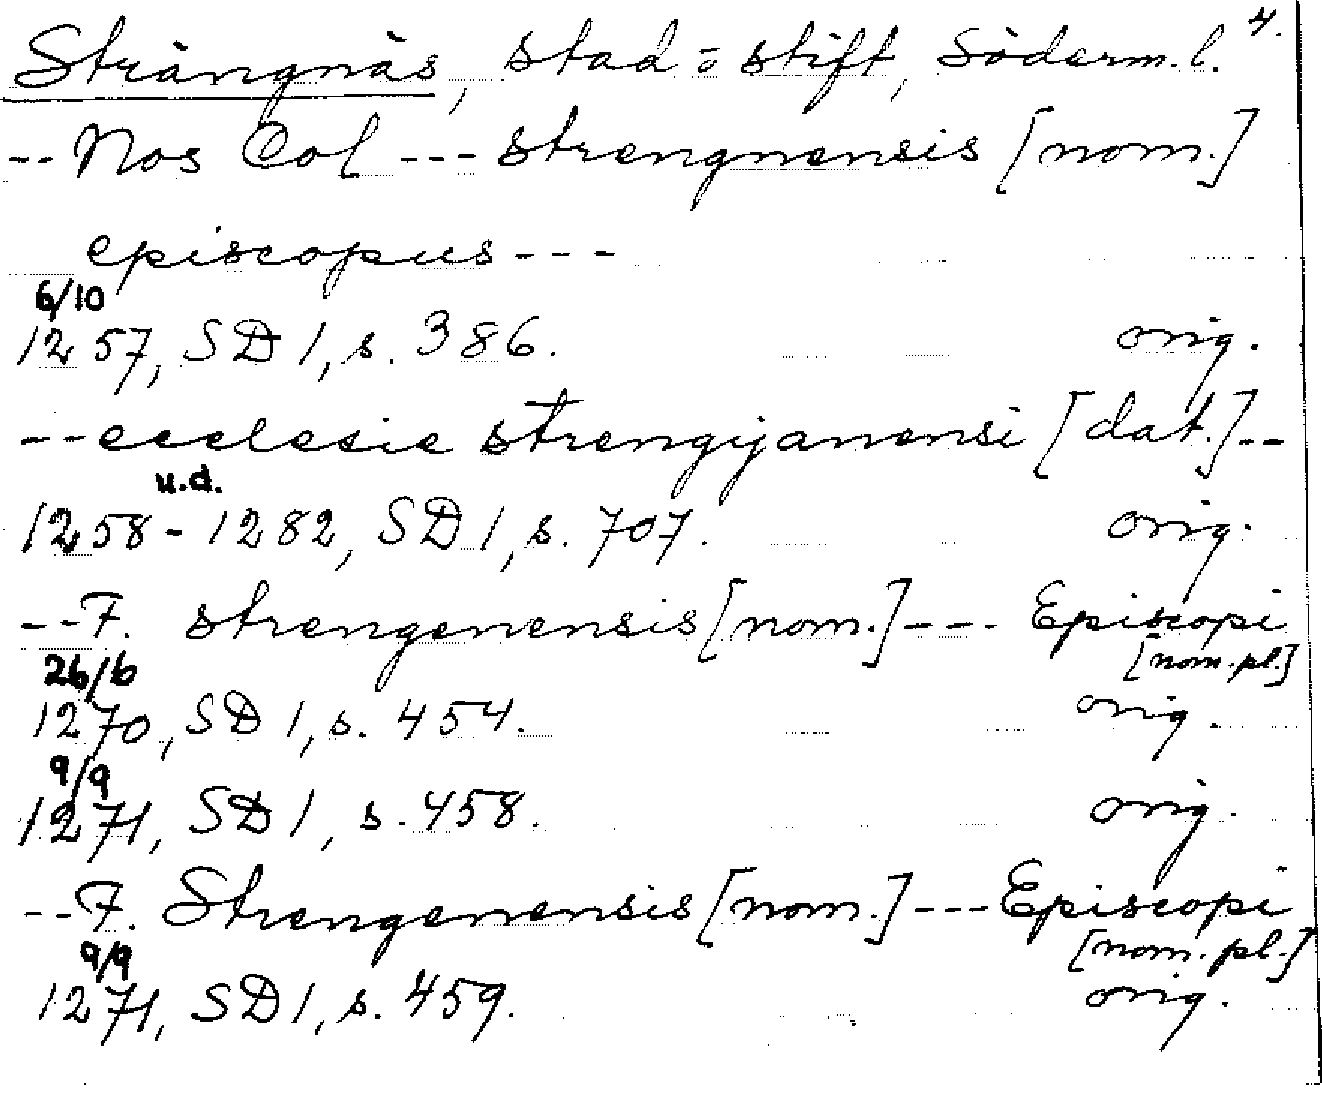 4.
Strängnäs, stad o stift, Söderm. l.
-- Nos Col --- strengnensis [nom.]
episcopus ---
6/10
1257, SD 1, s. 386. orig.
-- ecclesie strengijanensi [dat.] --
u.d.
1258 - 1282, SD 1, s. 707. orig.
-- F. strengenensis [nom.] --- Episcopi
[nom. pl.]
26/6
1270, SD 1, s. 454. orig.
9/9
1271, SD 1, s. 458. orig.
-- F. Strengenensis [nom.] --- Episcopi
[nom. pl.]
9/9
1271, SD 1, s. 459. orig.